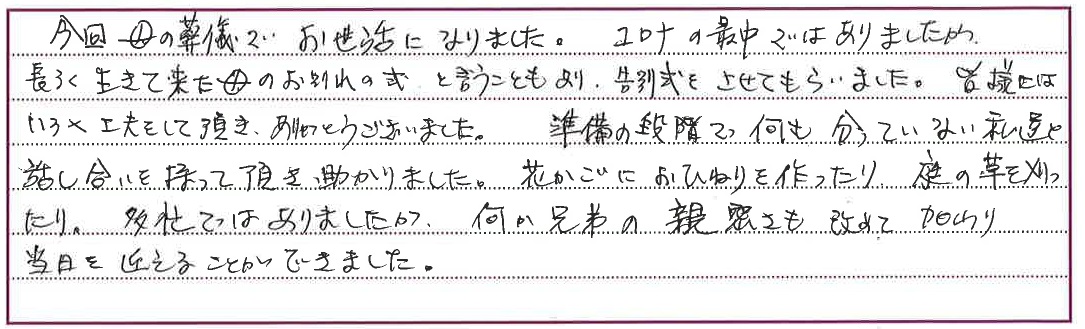 今回母の葬儀で お世話になりました。 コロナの最中ではありましたが、
長らく生きて来た母のお別れの式 と言うこともあり、告別式をさせてもらいました。皆様には
いろ々工夫をして頂き、ありがとうございました。 準備の段階で何も分っていない私達と
話し合いを持って頂き、助かりました。花かごにおひねりを作ったり、庭の草を刈っ
たり。 多忙ではありましたが、 何か兄弟の 親密さも 改めて 加わり
当日を迎えることができました。